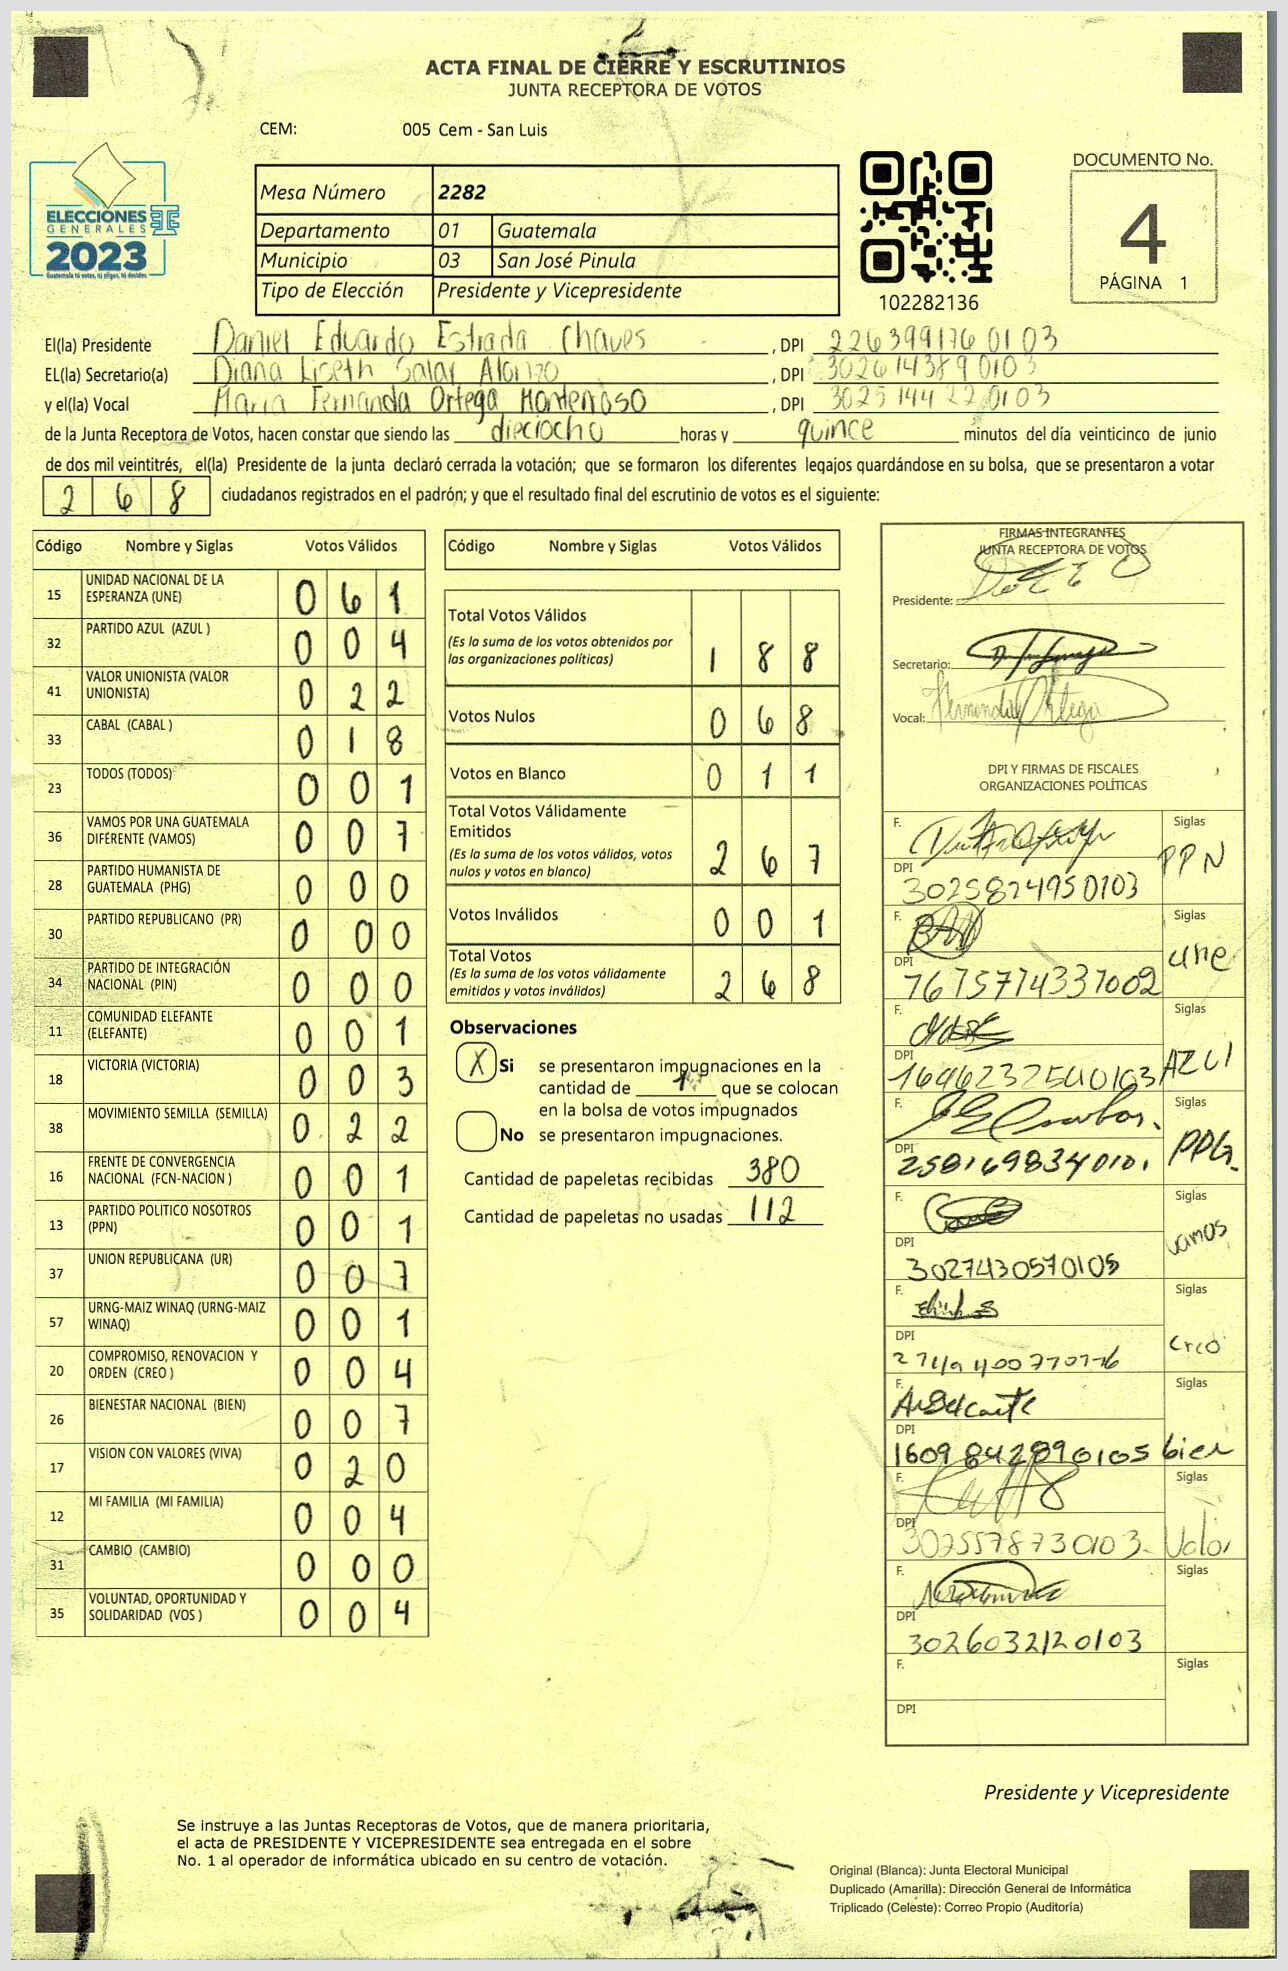 ACTA FINAL DE CIERRE Y ESCRUTINIOS
JUNTA RECEPTORA DE VOTOS
CEM: 005 Cem - San Luis
ELECCIONES
GENERALES
2023
Guatemala tú votas, tú eliges, tú decides
Mesa Número 2282
Departamento 01 Guatemala
Municipio 03 San José Pinula
Tipo de Elección Presidente y Vicepresidente
102282136
DOCUMENTO No.
4
PÁGINA 1
El(la) Presidente Daniel Eduardo Estrada Chaves , DPI 226399176 0103
EL(la) Secretario(a) Diana Liseth Salar Alonzo , DPI 302614389 0103
y el(la) Vocal María Fernanda Ortega Montenroso , DPI 302514422 0103
de la Junta Receptora de Votos, hacen constar que siendo las dieciocho horas y quince minutos del día veinticinco de junio
de dos mil veintitrés, el(la) Presidente de la junta declaró cerrada la votación; que se formaron los diferentes legajos quardándose en su bolsa, que se presentaron a votar
2 6 8 ciudadanos registrados en el padrón; y que el resultado final del escrutinio de votos es el siguiente:
Código Nombre y Siglas Votos Válidos
15 UNIDAD NACIONAL DE LA ESPERANZA (UNE) 0 6 1
32 PARTIDO AZUL (AZUL ) 0 0 4
41 VALOR UNIONISTA (VALOR UNIONISTA) 0 2 2
33 CABAL (CABAL ) 0 1 8
23 TODOS (TODOS) 0 0 1
36 VAMOS POR UNA GUATEMALA DIFERENTE (VAMOS) 0 0 7
28 PARTIDO HUMANISTA DE GUATEMALA (PHG) 0 0 0
30 PARTIDO REPUBLICANO (PR) 0 0 0
34 PARTIDO DE INTEGRACIÓN NACIONAL (PIN) 0 0 0
11 COMUNIDAD ELEFANTE (ELEFANTE) 0 0 1
18 VICTORIA (VICTORIA) 0 0 3
38 MOVIMIENTO SEMILLA (SEMILLA) 0 2 2
16 FRENTE DE CONVERGENCIA NACIONAL (FCN-NACION ) 0 0 1
13 PARTIDO POLITICO NOSOTROS (PPN) 0 0 1
37 UNION REPUBLICANA (UR) 0 0 7
57 URNG-MAIZ WINAQ (URNG-MAIZ WINAQ) 0 0 1
20 COMPROMISO, RENOVACION Y ORDEN (CREO ) 0 0 4
26 BIENESTAR NACIONAL (BIEN) 0 0 7
17 VISION CON VALORES (VIVA) 0 2 0
12 MI FAMILIA (MI FAMILIA) 0 0 4
31 CAMBIO (CAMBIO) 0 0 0
35 VOLUNTAD, OPORTUNIDAD Y SOLIDARIDAD (VOS ) 0 0 4
Código Nombre y Siglas Votos Válidos
Total Votos Válidos
(Es la suma de los votos obtenidos por
las organizaciones políticas) 1 8 8
Votos Nulos 0 6 8
Votos en Blanco 0 1 1
Total Votos Válidamente
Emitidos
(Es la suma de los votos válidos, votos
nulos y votos en blanco) 2 6 7
Votos Inválidos 0 0 1
Total Votos
(Es la suma de los votos válidamente
emitidos y votos inválidos) 2 6 8
Observaciones
X Si se presentaron impugnaciones en la
cantidad de 1 que se colocan
en la bolsa de votos impugnados
No se presentaron impugnaciones.
Cantidad de papeletas recibidas 380
Cantidad de papeletas no usadas 112
FIRMAS INTEGRANTES
JUNTA RECEPTORA DE VOTOS
Presidente:
Secretario:
Vocal: Fernanda Ortega
DPI Y FIRMAS DE FISCALES
ORGANIZACIONES POLÍTICAS
F. Siglas PPN
DPI 3025874950103
F. Siglas une
DPI 7675774337002
F. Siglas AZUl
DPI 1646232540103
F. Siglas PPG.
DPI 2581698340101
F. Siglas vamos
DPI 3027430570105
F. Siglas Creo
DPI
F. Siglas bien
DPI 1609842890105
F. Siglas Valor
DPI 3025578730103
F. Siglas
DPI 3026032120103
F. Siglas
DPI
Presidente y Vicepresidente
Se instruye a las Juntas Receptoras de Votos, que de manera prioritaria,
el acta de PRESIDENTE Y VICEPRESIDENTE sea entregada en el sobre
No. 1 al operador de informática ubicado en su centro de votación.
Original (Blanca): Junta Electoral Municipal
Duplicado (Amarilla): Dirección General de Informática
Triplicado (Celeste): Correo Propio (Auditoría)